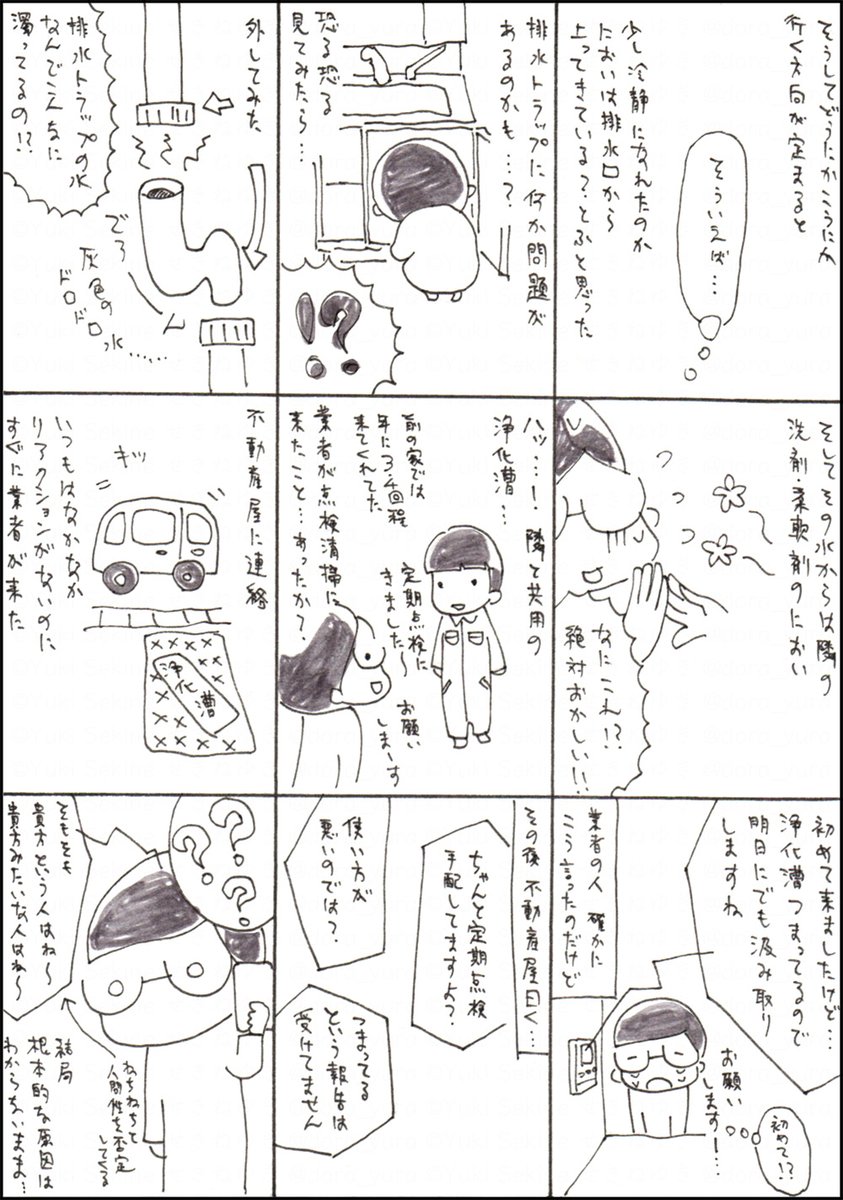 そうしてどうたかこうにか
行く方向が定まると
そういえば…
少し冷静になれたのか
においは排水口から
上ってきている?とふと思った
排水トラップに何か問題が
あるのかも…?
恐る恐る
見てみたら…
!?
外してみた
排水トラップの水
なんでこんなに
濁ってるの!?
でろ〜ん
灰色の
ドロドロ水……
そしてその水からは隣の
洗剤・柔軟剤のにおい
なにこれ!?
絶対おかしい!!
ハッ!隣と共用の
浄化漕…
前の家では
年に3,4回程
来てくれてた
業者が点検清掃に
来たこと…あったか?
定期点検に
きました〜
お願い
します
不動産屋に連絡
キッ
浄化漕
いつもはなかなか
リアクションがないのに
すぐに業者が来た
初めて来ましたけど…
浄化漕つまってるので
明日にでも汲み取り
しますね
お願い
します!…
初めて!?
業者の人 確かに
こう言ったのだけど
その後 不動産屋曰く…
ちゃんと定期点検
手配してますよ?
使い方が
悪いのでは?
つまってる
という報告は
受けてません
???
そもそも
貴方という人はね〜
貴方みたいな人はね〜
ねちねちと
人間性を否定
してくる
結局
根本的な原因は
わからないまま…
©Yuki Sekine
@doro_yuro